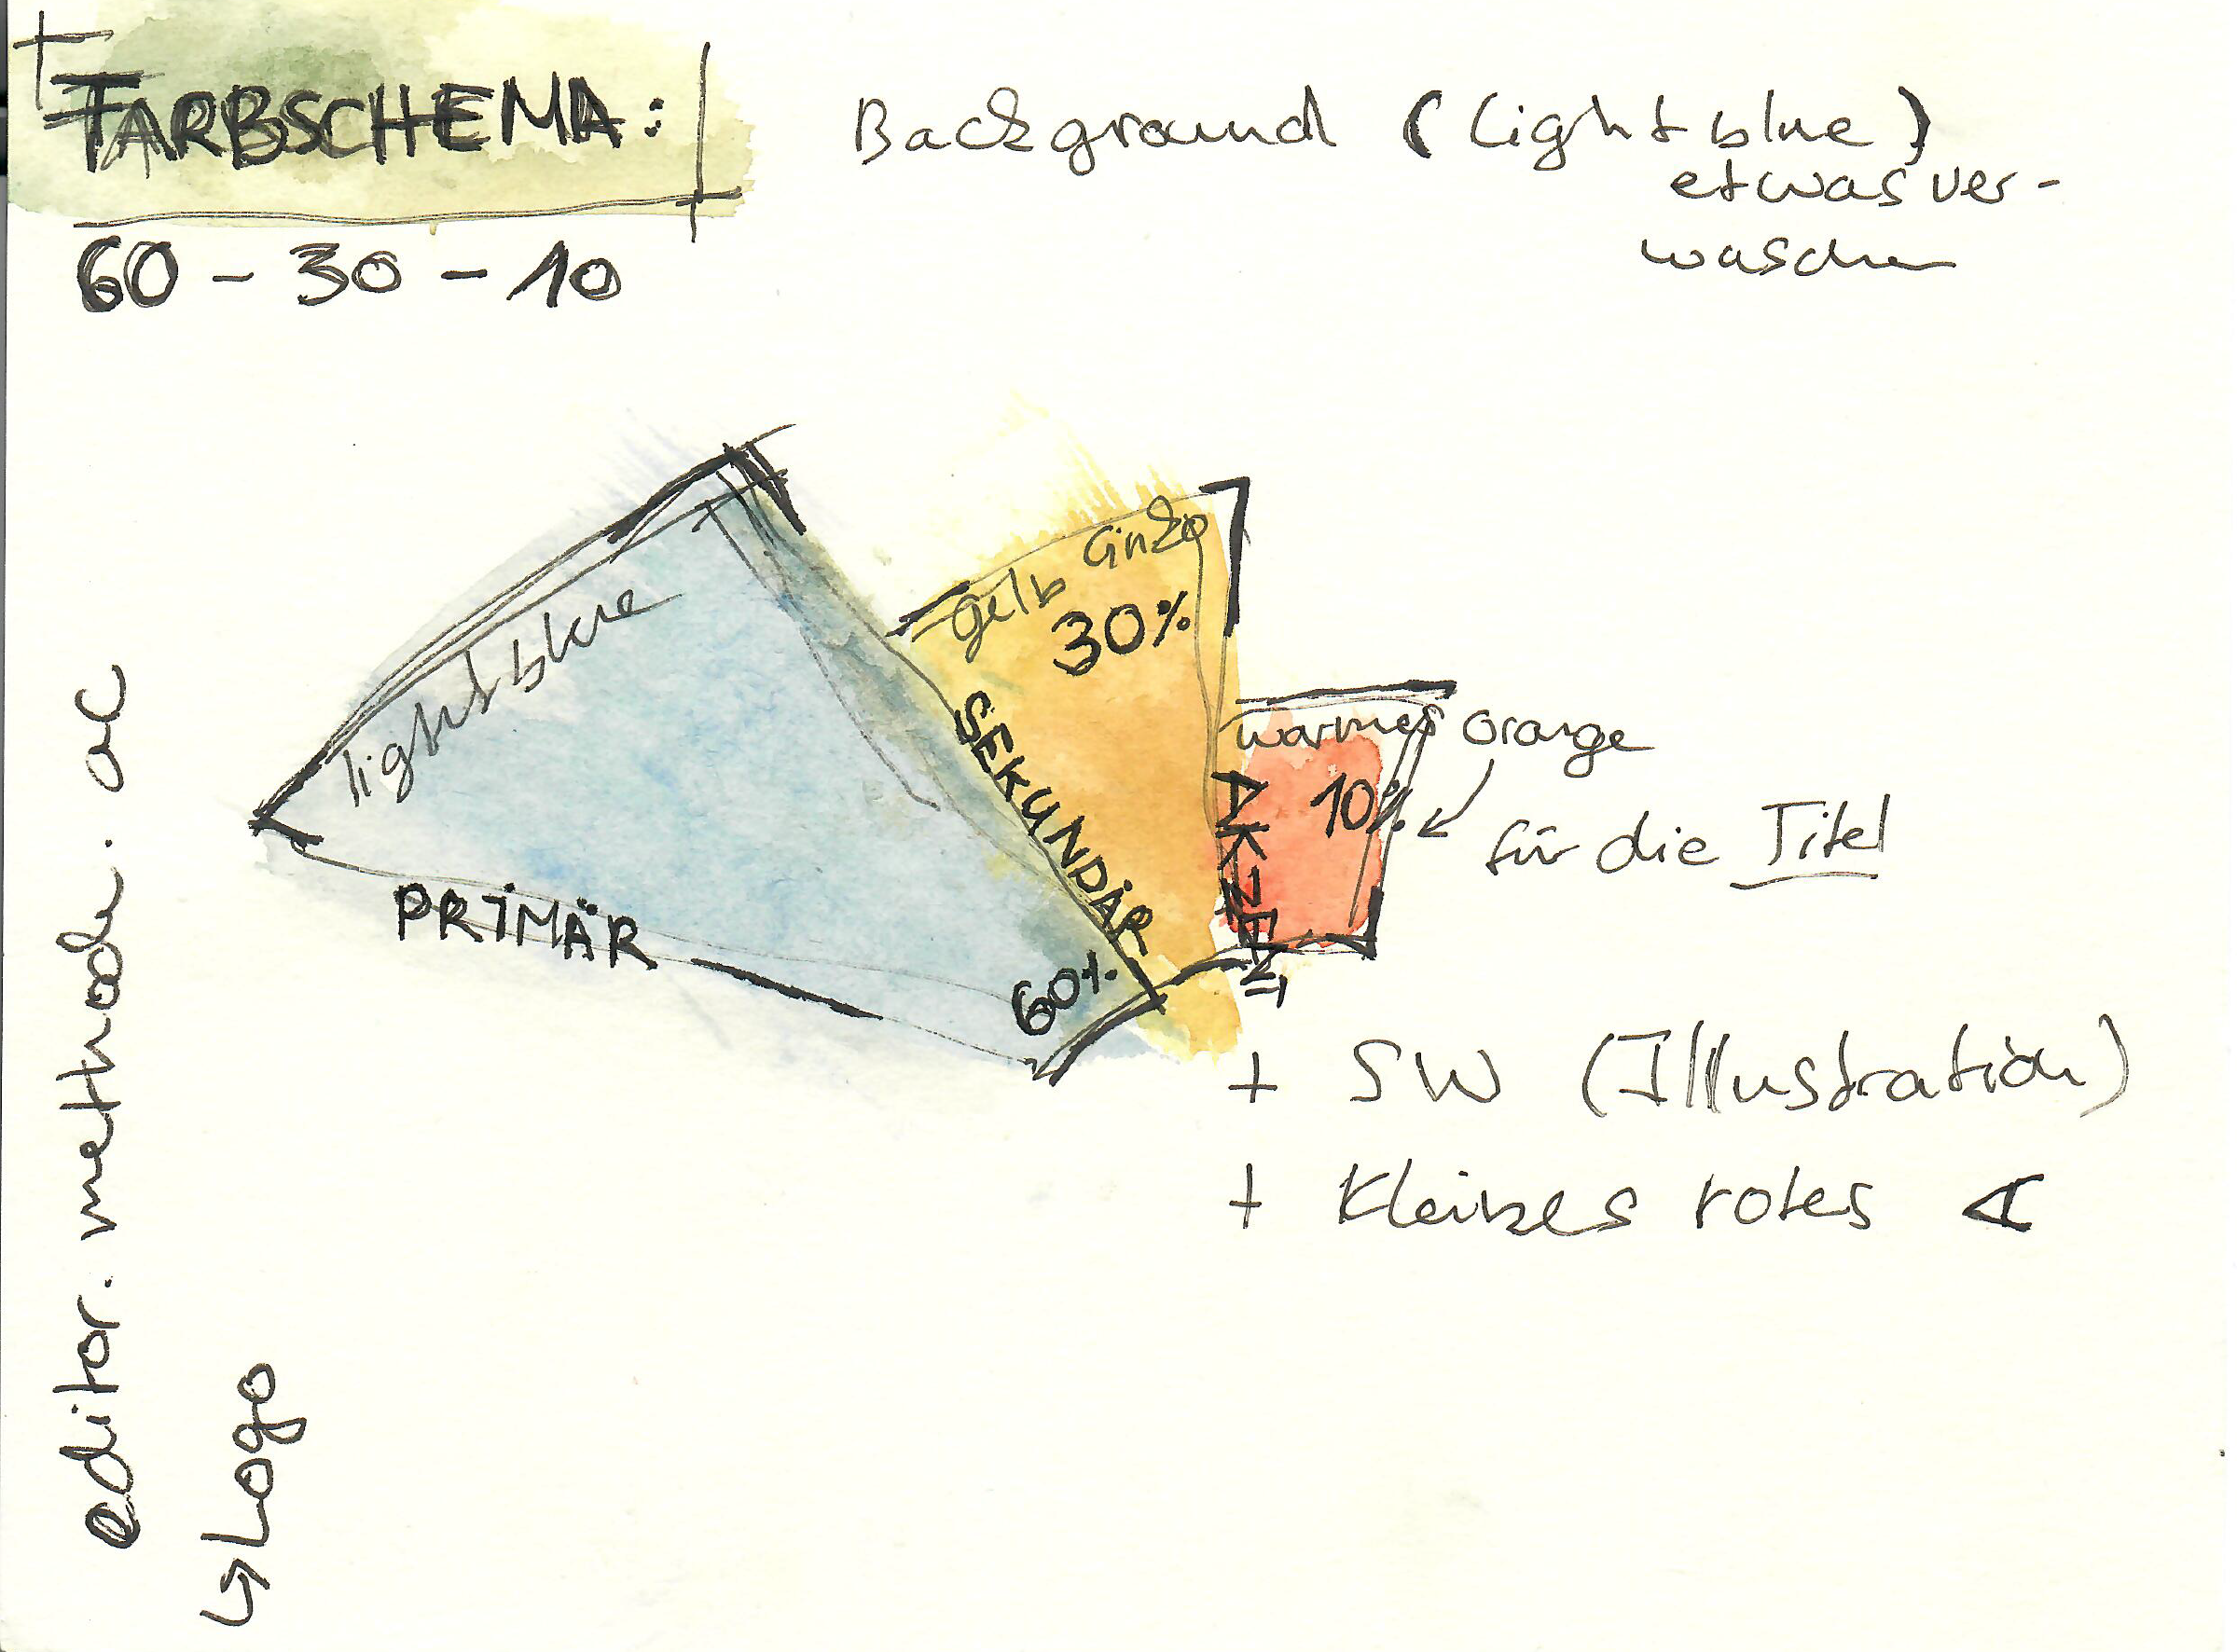 FARBSCHEMA:
60 - 30 - 10
Background (lightblue)
etwas ver-
waschen
lightblue
PRIMÄR
60%
gelb Ginko
30%
SEKUNDÄR
warmes orange
10%
AKZENT
für die Titel
+ SW (Illustration)
+ kleines rotes
editor.methode.ac
↳ Logo